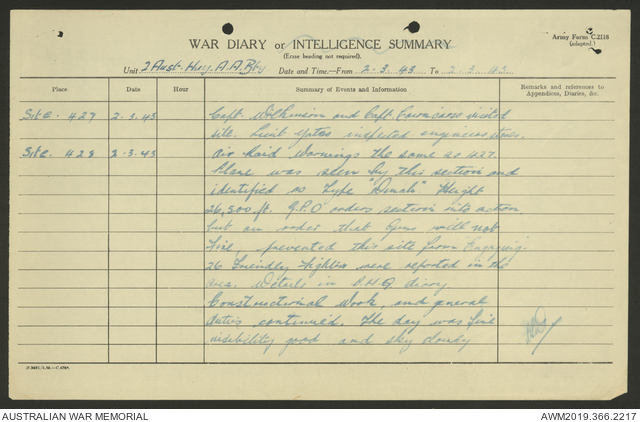 WAR DIARY or INTELLIGENCE SUMMARY
(Erase heading not required).
Army Form C.2118
(adapted.)
Unit 2 Aust. Hvy. A.A. Bty Date and Time.—From 2-3-43 To 2-3-43
Place Date Hour Summary of Events and Information Remarks and references to Appendices, Diaries, &c.
Site 427 2-3-43 Capt. Wilkinson and Capt. visited
site. Lieut Yates inspected engineers stores.
Site 428 2-3-43 Air Raid Warnings the same as 427.
Plane was seen by this section and
identified as Type "Dinah" Height
26,500 ft. G.P.O orders section into action
but an order that Guns will not
fire, prevented this site from Engaging.
26 Friendly Fighters were reported in the
area. Details in B.H.Q diary.
Constructional Work, and general
duties continued. The day was fine
visibility good and sky cloudy
AUSTRALIAN WAR MEMORIAL
AWM2019.366.2217